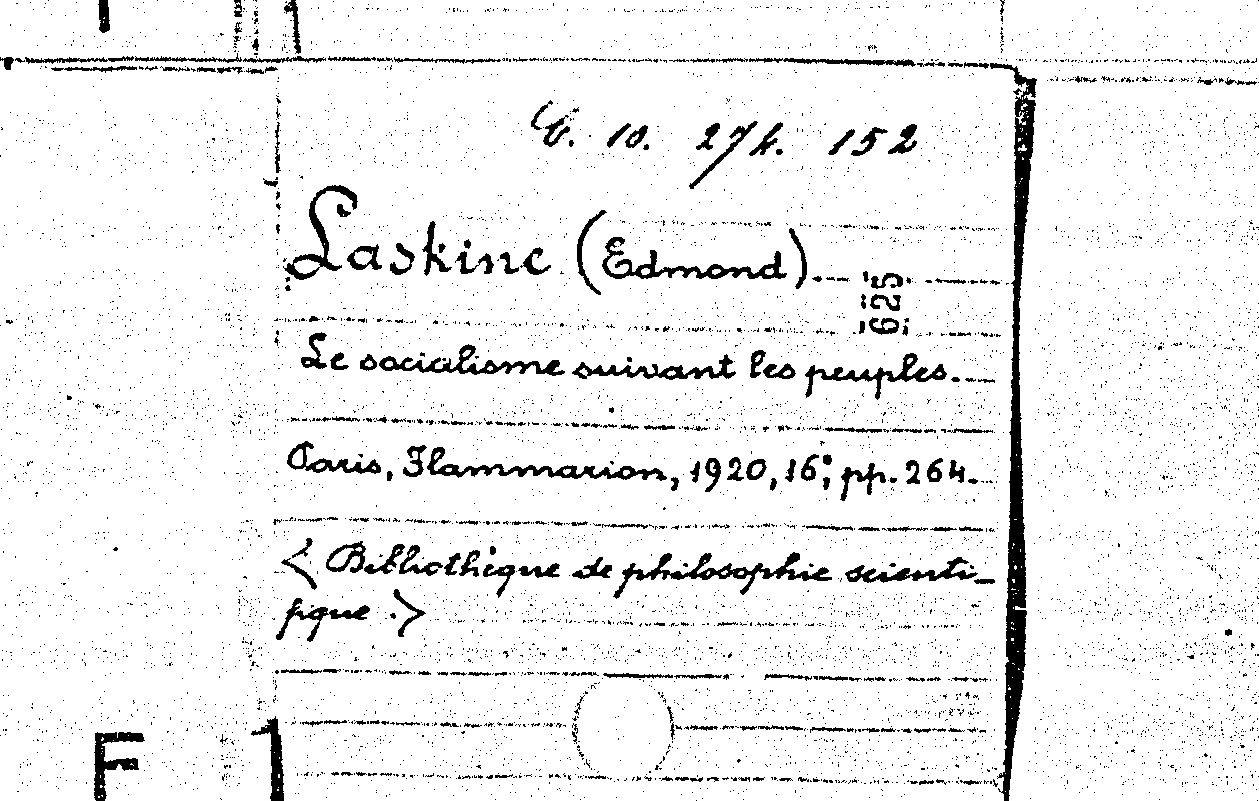 10. 274. 152
Laskine (Edmond).
625
Le socialisme suivant les peuples.
Paris, Flammarion, 1920, 16°; pp. 264.
< Bibliothèque de philosophie scienti-
fique. >
F